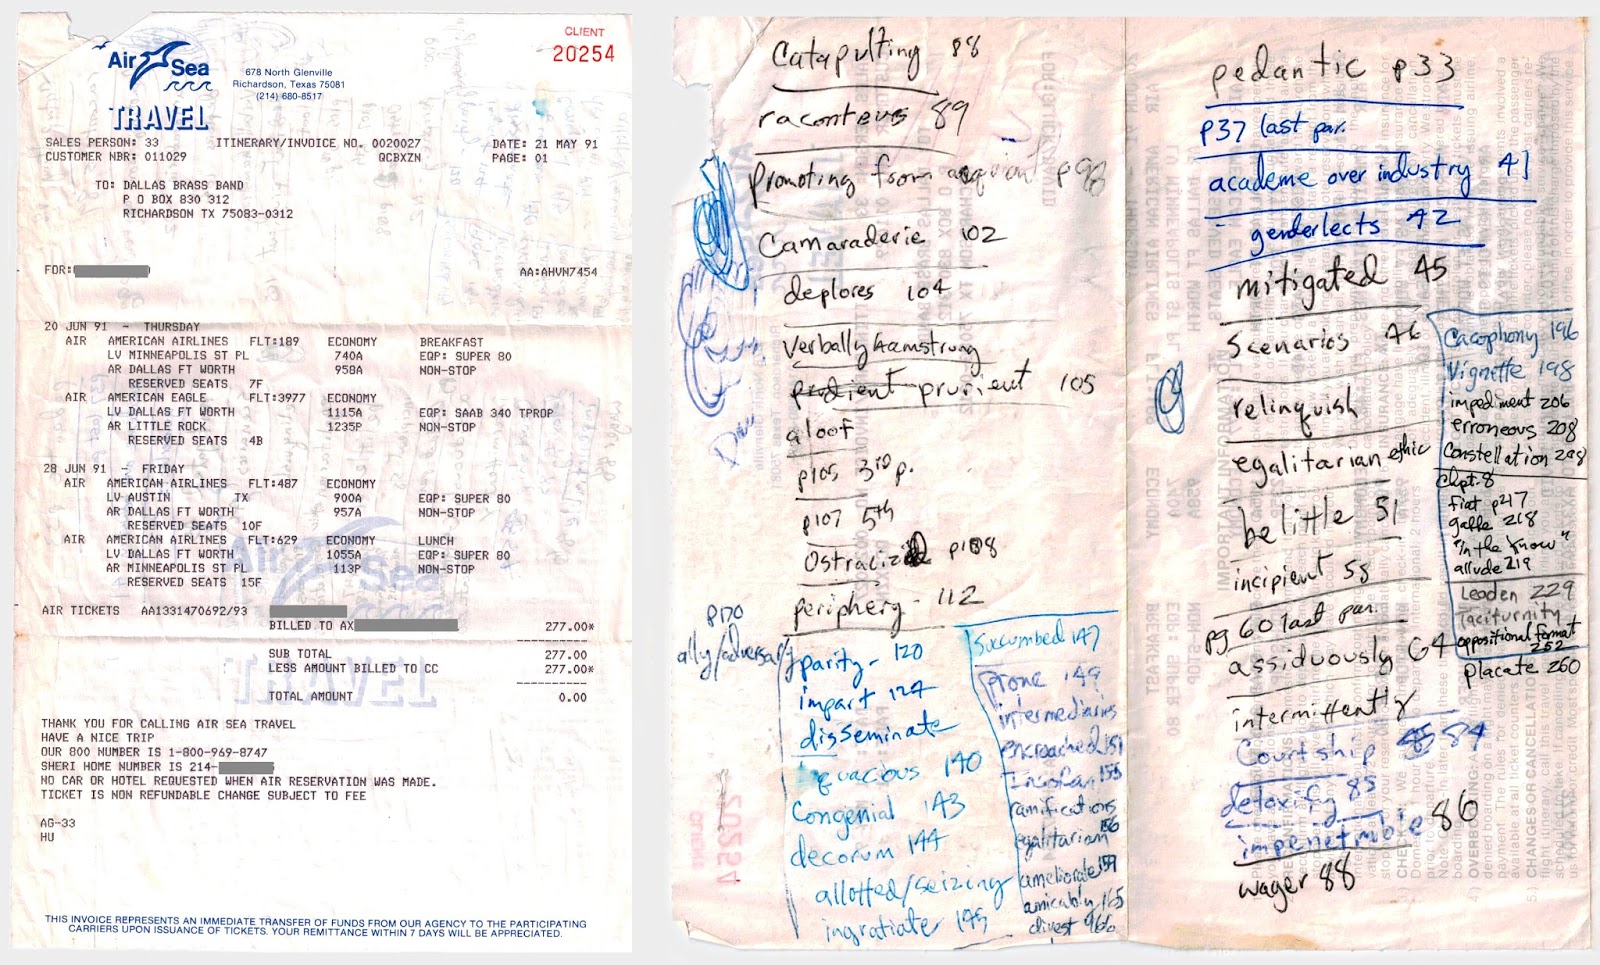 Air Sea
TRAVEL
678 North Glenville
Richardson, Texas 75081
(214) 680-8517
CLIENT
20254
SALES PERSON: 33 ITINERARY/INVOICE NO. 0020027 DATE: 21 MAY 91
CUSTOMER NBR: 011029 QCBXZN PAGE: 01
TO: DALLAS BRASS BAND
P O BOX 830 312
RICHARDSON TX 75083-0312
FOR: AA:AHVN7454
20 JUN 91 - THURSDAY
AIR AMERICAN AIRLINES FLT:189 ECONOMY BREAKFAST
LV MINNEAPOLIS ST PL 740A EQP: SUPER 80
AR DALLAS FT WORTH 958A NON-STOP
RESERVED SEATS 7F
AIR AMERICAN EAGLE FLT:3977 ECONOMY
LV DALLAS FT WORTH 1115A EQP: SAAB 340 TPROP
AR LITTLE ROCK 1235P NON-STOP
RESERVED SEATS 4B
28 JUN 91 - FRIDAY
AIR AMERICAN AIRLINES FLT:487 ECONOMY
LV AUSTIN TX 900A EQP: SUPER 80
AR DALLAS FT WORTH 957A NON-STOP
RESERVED SEATS 10F
AIR AMERICAN AIRLINES FLT:629 ECONOMY LUNCH
LV DALLAS FT WORTH 1055A EQP: SUPER 80
AR MINNEAPOLIS ST PL 113P NON-STOP
RESERVED SEATS 15F
AIR TICKETS AA1331470692/93
BILLED TO AX 277.00*
SUB TOTAL 277.00
LESS AMOUNT BILLED TO CC 277.00*
TOTAL AMOUNT 0.00
THANK YOU FOR CALLING AIR SEA TRAVEL
HAVE A NICE TRIP
OUR 800 NUMBER IS 1-800-969-8747
SHERI HOME NUMBER IS 214-
NO CAR OR HOTEL REQUESTED WHEN AIR RESERVATION WAS MADE.
TICKET IS NON REFUNDABLE CHANGE SUBJECT TO FEE
AG-33
HU
THIS INVOICE REPRESENTS AN IMMEDIATE TRANSFER OF FUNDS FROM OUR AGENCY TO THE PARTICIPATING
CARRIERS UPON ISSUANCE OF TICKETS. YOUR REMITTANCE WITHIN 7 DAYS WILL BE APPRECIATED.
Catapulting 88
raconteus 89
Promoting from p98
Camaraderie 102
deplores 104
Verbally Aamstrung
prurient 105
aloof
p105 3rd p.
p107 5th
Ostraciz p108
periphery - 112
p170
ally/adversary
parity - 120
impart 124
disseminate
quacious 140
Congenial 143
decorum 144
allotted/seizing
ingratiate 145
Succumbed 147
prone 149
intermediaries
encroached 151
ramifications
egalitarian 156
ameliorate 159
amicably 165
divest 166
pedantic p33
p37 last par.
academe over industry 41
genderlects 42
mitigated 45
Scenarios 46
relinquish
egalitarian ethic
belittle 51
incipient 58
pg 60 last par.
assiduously 64
intermittently
Courtship 84
detoxify 85
impenetrable 86
wager 88
Cacophony 196
Vignette 198
impediment 206
erroneous 208
Constellation 208
chpt. 8
fiat p217
gaffe 218
"in the know"
allude 219
Leaden 229
Taciturnity
oppositional format
252
placate 260